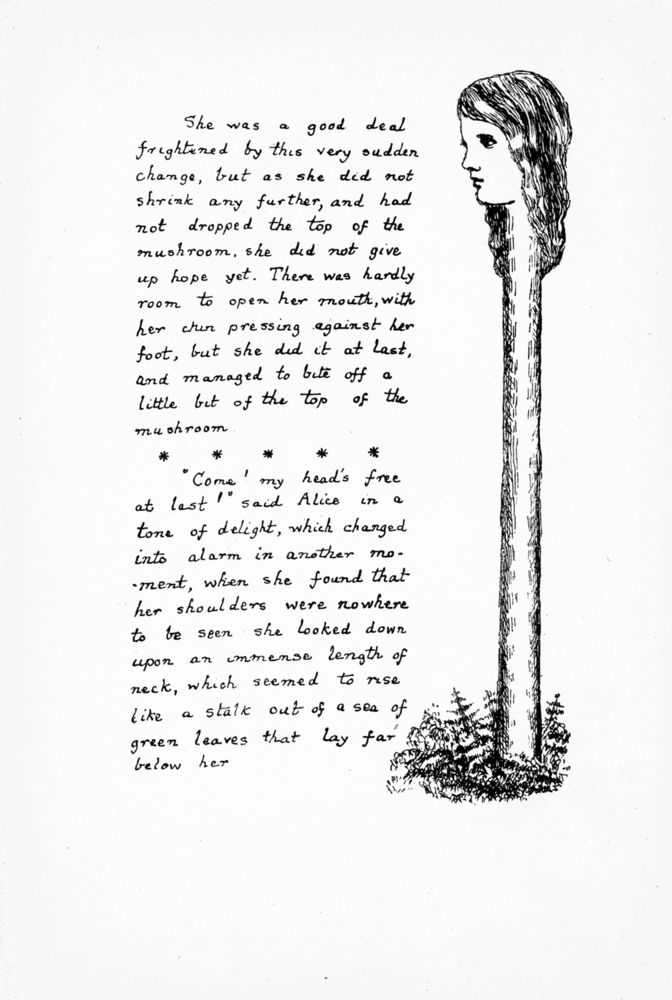 She was a good deal
frightened by this very sudden
change, but as she did not
shrink any further, and had
not dropped the top of the
mushroom, she did not give
up hope yet. There was hardly
room to open her mouth, with
her chin pressing against her
foot, but she did it at last,
and managed to bite off a
little bit of the top of the
mushroom.
* * * * *
"Come! my head's free
at last!" said Alice in a
tone of delight, which changed
into alarm in another mo-
-ment, when she found that
her shoulders were nowhere
to be seen she looked down
upon an immense length of
neck, which seemed to rise
like a stalk out of a sea of
green leaves that lay far
below her